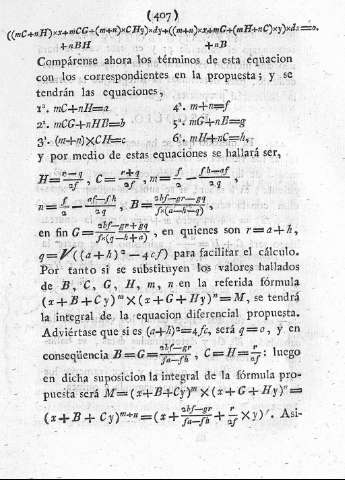 (407)
((mC+nH)×x+mCG+(m+n)×CHy)×dy+((m+n)×x+mG+(mH+nC)×y)×dx=o.
+nBH +nB
Compárense ahora los términos de esta equacion
con los correspondientes en la propuesta; y se
tendrán las equaciones,
1ª. mC+nH=a 4ª. m+n=f
2ª. mCG+nHB=b 5ª. mG+nB=g
3ª. (m+n)×CH=c 6ª. mH+nC=h,
y por medio de estas equaciones se hallará ser,
H=\frac{r-q}{2f}, C=\frac{r+q}{2f}, m=\frac{f}{2}-\frac{fh-af}{2q},
n=\frac{f}{2}-\frac{af-fh}{2q}, B=\frac{2bf-gr-gq}{f×(a-h-q)},
en fin G=\frac{2bf-gr+gq}{f×(q-h+a)}, en quienes son r=a+h,
q=√((a+h)²-4cf) para facilitar el cálculo.
Por tanto si se substituyen los valores hallados
de B, C, G, H, m, n en la referida fórmula
(x+B+Cy)^m×(x+G+Hy)^n=M, se tendrá
la integral de la equacion diferencial propuesta.
Adviértase que si es (a+h)²=4fc, será q=o, y en
conseqüencia B=G=\frac{2bf-gr}{fa-fh}, C=H=\frac{r}{2f}: luego
en dicha suposicion la integral de la fórmula pro-
puesta será M=(x+B+Cy)^m×(x+G+Hy)^n=
(x+B+Cy)^{m+n}=(x+\frac{2bf-gr}{fa-fh}+\frac{r}{2f}×y)^f. Asi-